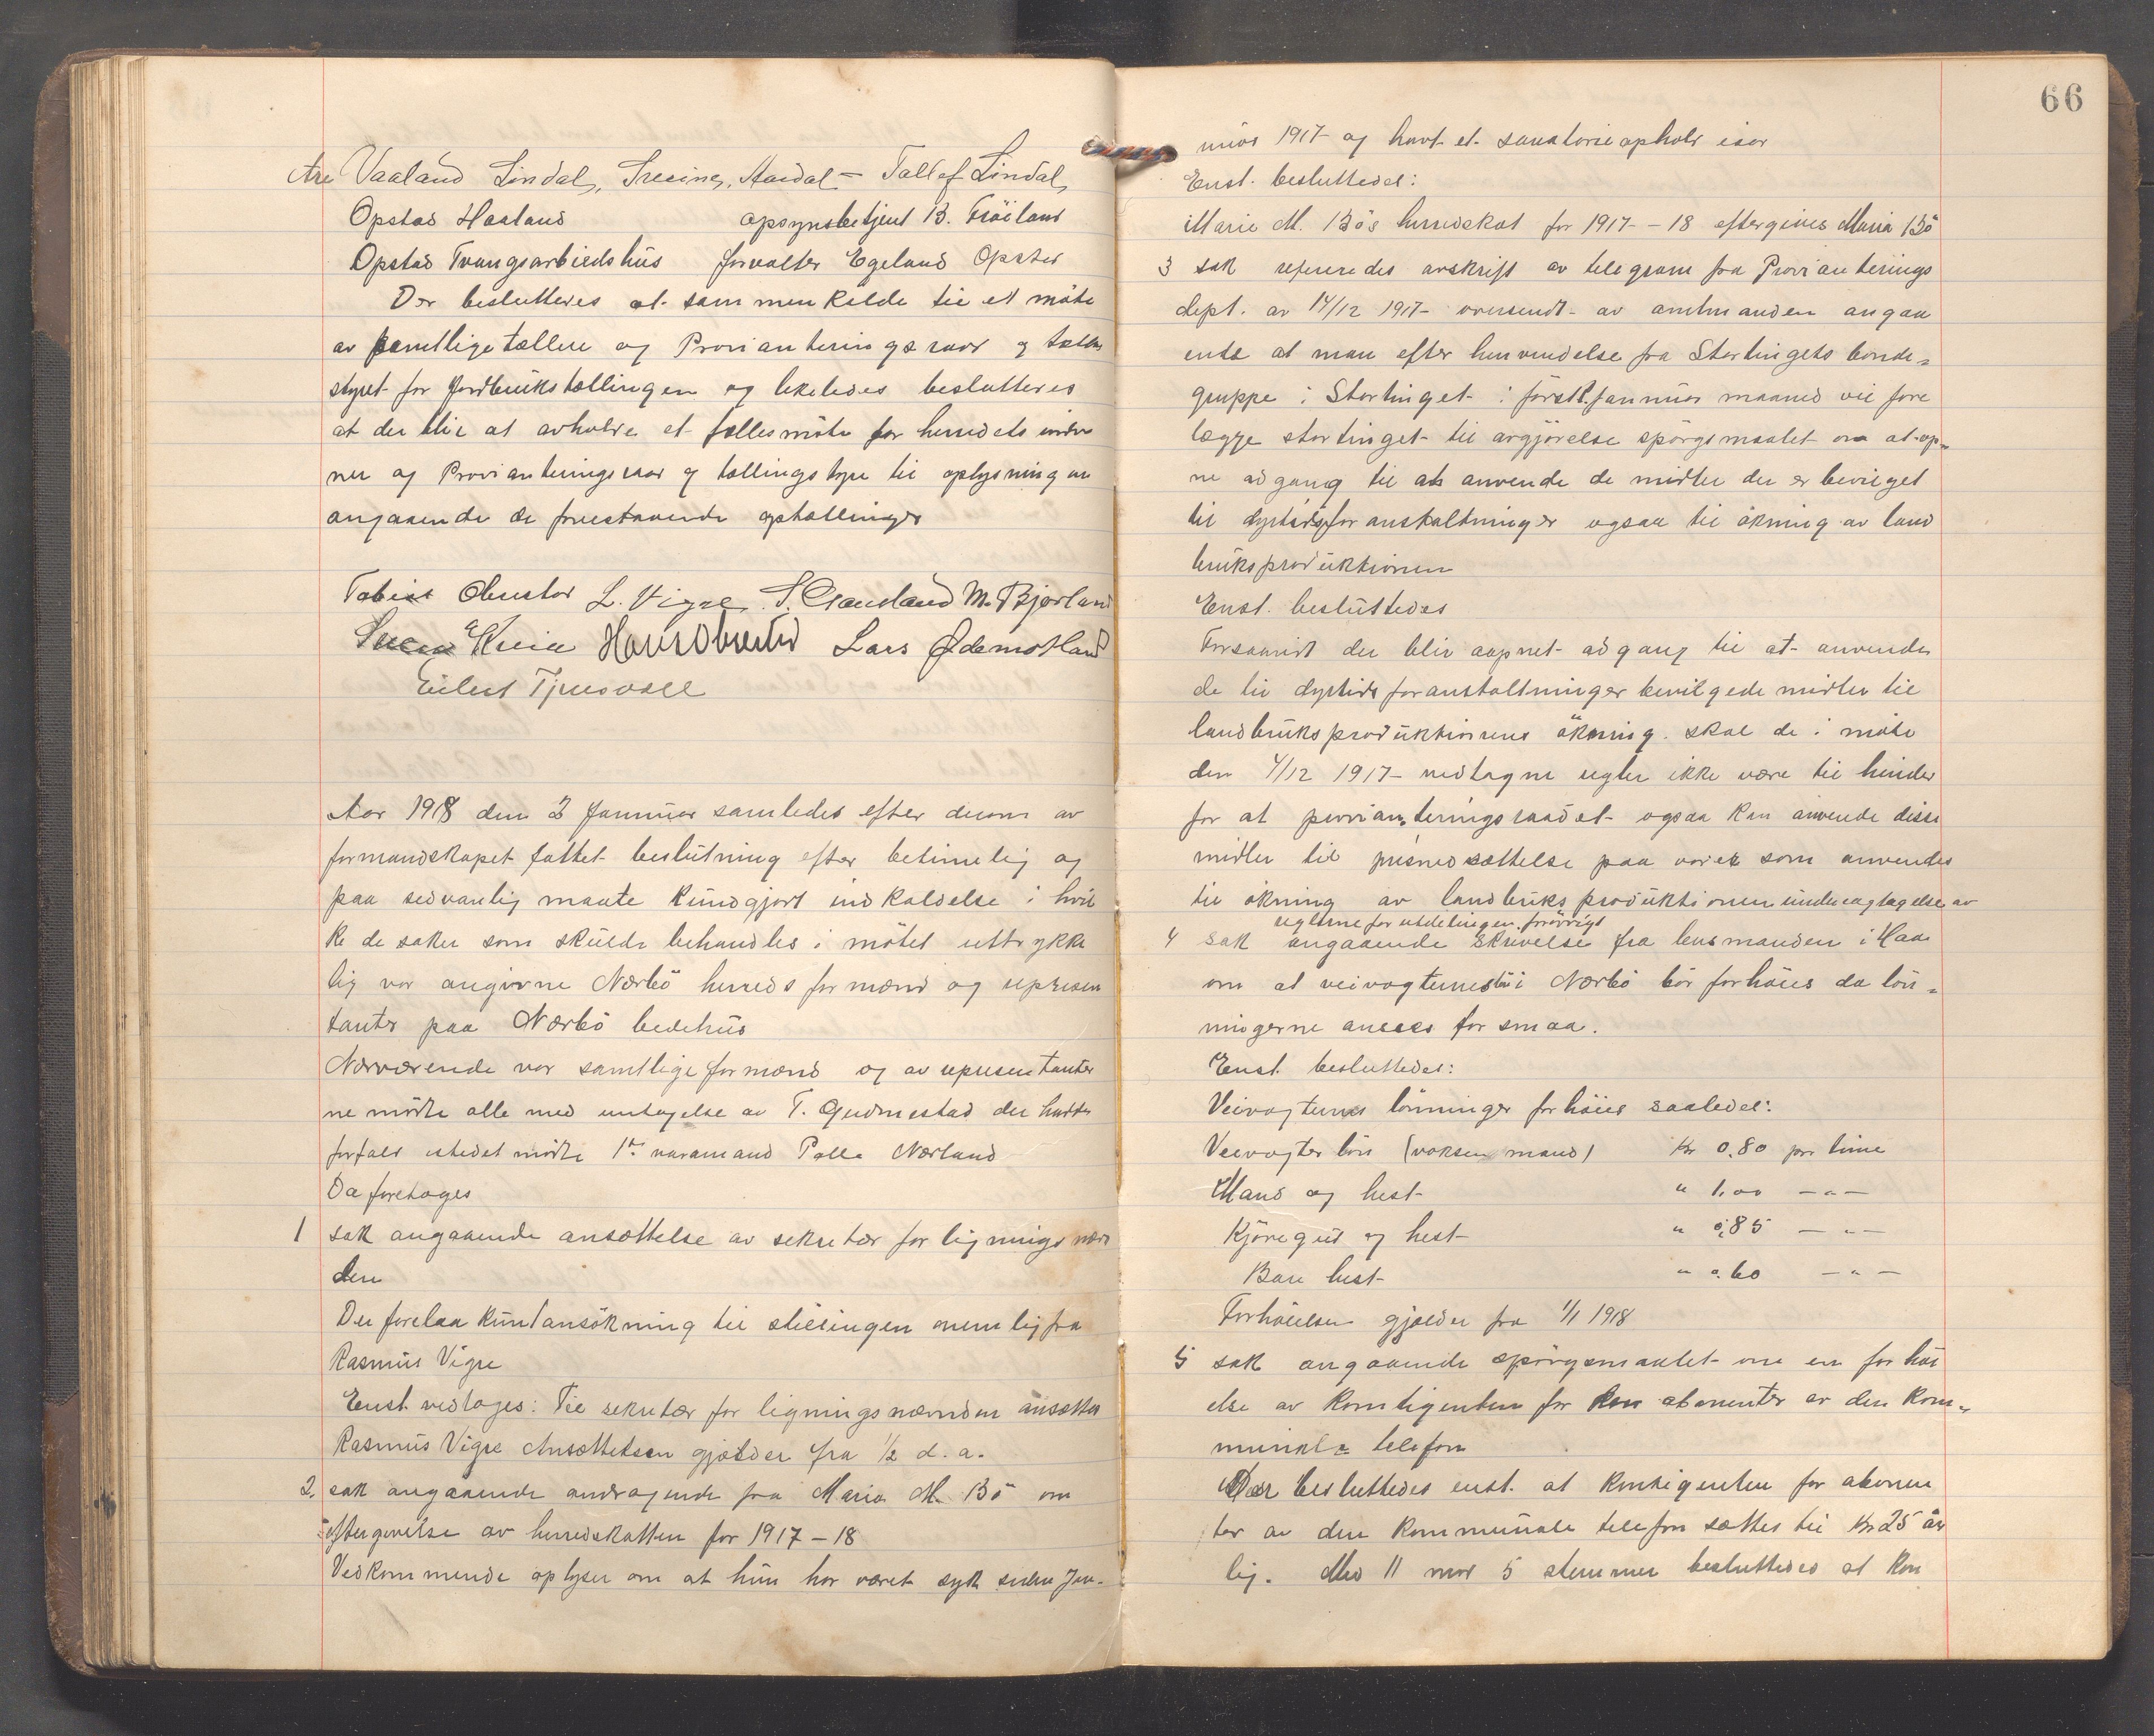 Are Vaaland Lindal, Treeine, Aardal - Tallef Lindal,
Opstad Haaland opsynsbetjent B. Fröiland
Opstad Tvangsarbeidshus forvalter Egeland Opstad
Der besluttedes at sammenkalde til et möte
av samtlige tællere og Provianteringsraad og tælle
styret for Jordbrukstællingen og likeledes besluttedes
at der blir at avholde et fællesmöte for herredets indvaa
ner og Provianteringsraad og tællingstyre til oplysning om
angaaende de forestaaende optællinger
Tobias Obrestad L. Vigre. T. Graudland M. Bjorland
Svein Kvia Hans Obrestad Lars Ødemotland
Eilert Tjensvoll
Aar 1918 den 3 Januar samledes efter derom av
formandskapet fattet beslutning efter betimelig og
paa sedvanlig maate kundgjort indkaldelse i hvil
ke de saker som skulde behandles i mötet uttrykke
lig var angivne Nærbö herreds formænd og represen
tanter paa Nærbö bedehus
Nærværende var samtlige formænd og av representanter
ne mötte alle med undtagelse av T. Gudmestad der hadde
forfald istedet mötte 1ste varamand Palle Nærland
Da foretoges
1 sak angaaende ansættelse av sekretær for ligningsnævn
den
Der forelaa kun 1 ansökning til stillingen nemlig fra
Rasmus Vigre
Enst. vedtoges: Til sekretær for ligningsnævnden ansættes
Rasmus Vigre Ansættelsen gjælder fra 1/2 d. a.
2. sak angaaende andragende fra Maria M. Bö om
eftergivelse av herredskatten for 1917-18
Vedkommende oplyser om at hun har været syk siden Jan-
66
uar 1917 og havt et sanatorieophold isaar
Enst. besluttedes:
Marie M. Bös herredskat for 1917-18 eftergives Maria Bö
3 sak refereredes avskrift av telegram fra Provianterings
dept. av 14/12 1917 oversendt av amtmanden angaa
ende at man efter henvendelse fra Stortingets bonde-
gruppe i Stortinget i först. Januar maaned vil fore
lægge stortinget til avgjörelse spörgsmaalet om at op-
ne adgang til at anvende de midler der er bevilget
til dyrtidsforanstaltninger ogsaa til ökning av land
bruksproduktionen
Enst. besluttedes
Forsaavidt der blir aapnet adgang til at anvende
de til dyrtidsforanstaltninger bevilgede midler til
landbruksproduktionens ökning. skal de i möte
den 4/12 1917 vedtagne regler ikke være til hinder
for at provianteringsraadet ogsaa kan anvende disse
midler til prisnedsættelse paa varer som anvendes
til ökning av landbruksproduktionen under iagtagelse av
reglerne for utdelingen forövrigt
4 sak angaaende skrivelse fra lensmanden i Haa
om at veivogternes lön i Nærbö bör forhöies da lön-
ningerne ansees for smaa.
Enst. besluttedes:
Veivogternes lönninger forhöies saaledes:
Veivogter lön (voksen mand) Kr 0,80 pr. time
Mand og hest " 1,00 - " -
Kjöregut og hest " 0,85 - " -
Bare hest " 0.60 - " -
Forhöielsen gjælder fra 1/1 1918
5 sak angaaende spörgsmaalet om en forhöi
else av Kontigenten for abonenter av den kom-
munale telefon
Der besluttedes enst. at kontigenten for abonen
ter av den kommunale telefon sættes til kr 25 aar
lig. Med 11 mot 5 stemmer besluttedes at kon